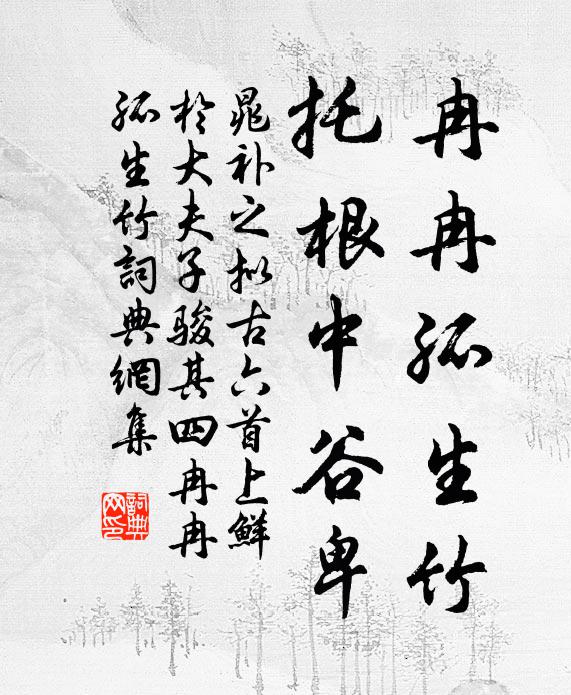 冉冉孤生竹
托根中谷卑
晁补之拟古六首上鮮
於大夫子骏其四冉冉
孤生竹詞典網集
詞典
网印